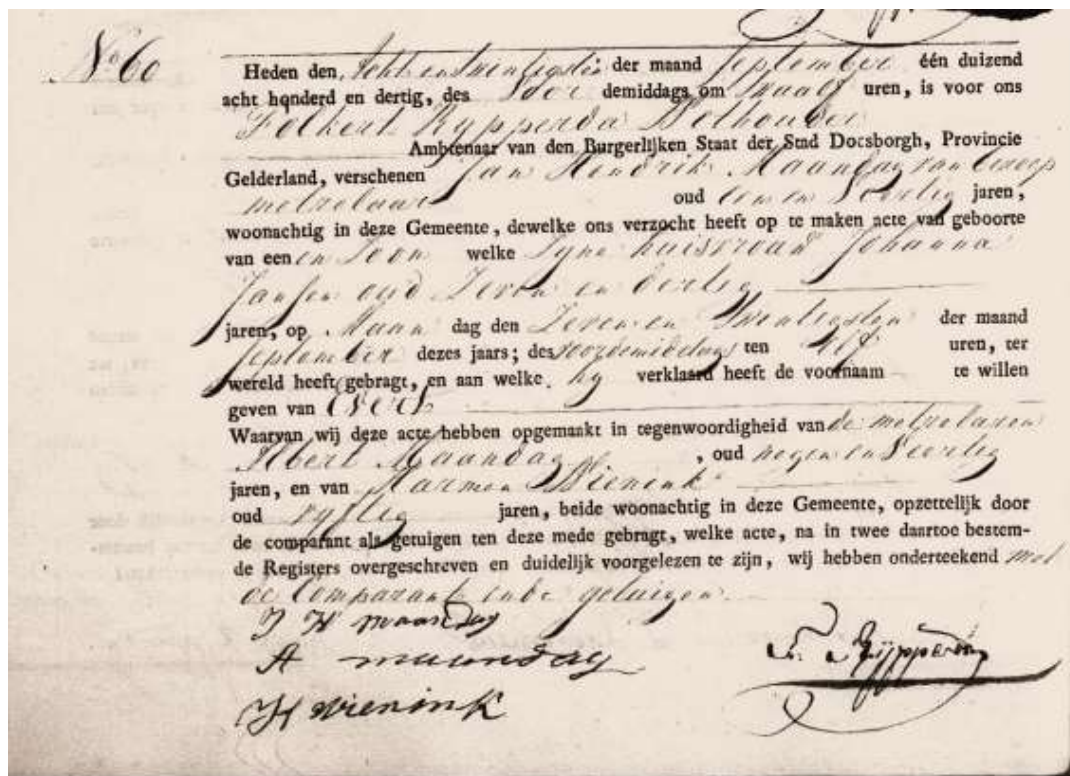 No 60
Heden den Acht en twintigsten der maand September één duizend
acht honderd en dertig, des Voor demiddags om twaalf uren, is voor ons
Folkert Rypperda Wethouder
Ambtenaar van den Burgerlijken Staat der Stad Doesborgh, Provincie
Gelderland, verschenen Jan Hendrik Maandag van beroep
metzelaar oud een en Veertig jaren,
woonachtig in deze Gemeente, dewelke ons verzocht heeft op te maken acte van geboorte
van een en Zoon welke Zyne huisvrouw Johanna
Jansen oud Zeven en dertig
jaren, op Maan dag den Zeven en Twintigsten der maand
September dezes jaars; des voordemiddags ten Elf uren, ter
wereld heeft gebragt, en aan welke hy verklaard heeft de voornaam te willen
geven van Evert
Waarvan wij deze acte hebben opgemaakt in tegenwoordigheid van de metzelaren
Albert Maandag, oud negen en Veertig
jaren, en van Harmen Wienink
oud vyftig jaren, beide woonachtig in deze Gemeente, opzettelijk door
de comparant als getuigen ten deze mede gebragt, welke acte, na in twee daartoe bestem-
de Registers overgeschreven en duidelijk voorgelezen te zijn, wij hebben onderteekend met
de Comparant en de getuigen
J H maandag
A maandag
H wienink
F. Rijpperda